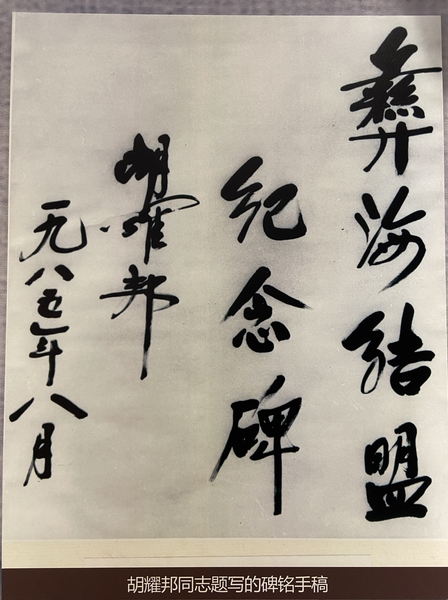 彝海结盟
纪念碑
胡耀邦
一九八五年八月
胡耀邦同志题写的碑铭手稿